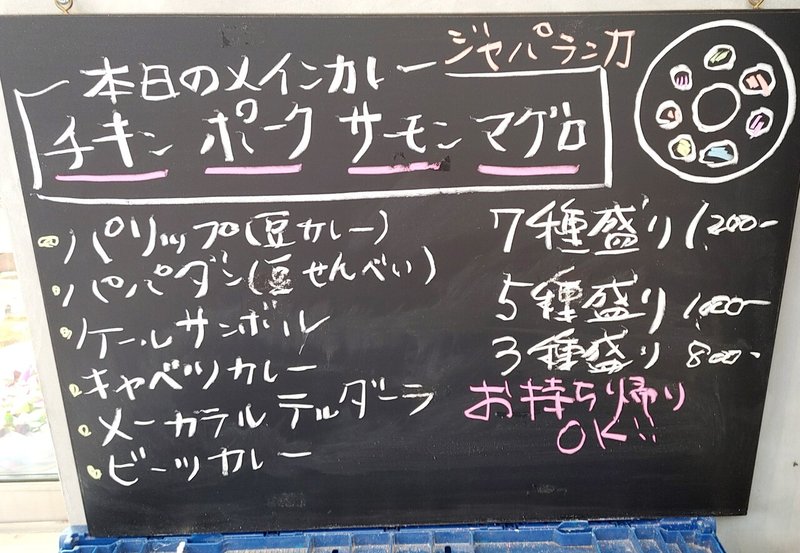 ジャパランカ
本日のメインカレー
チキン ポーク サーモン マグロ
パリップ(豆カレー)
パパダン(豆せんべい)
ケールサンボル
キャベツカレー
メーカラルテルダーラ
ビーツカレー
7種盛り 1,200-
5種盛り 1,000-
3種盛り 800-
お持ち帰り
OK!!